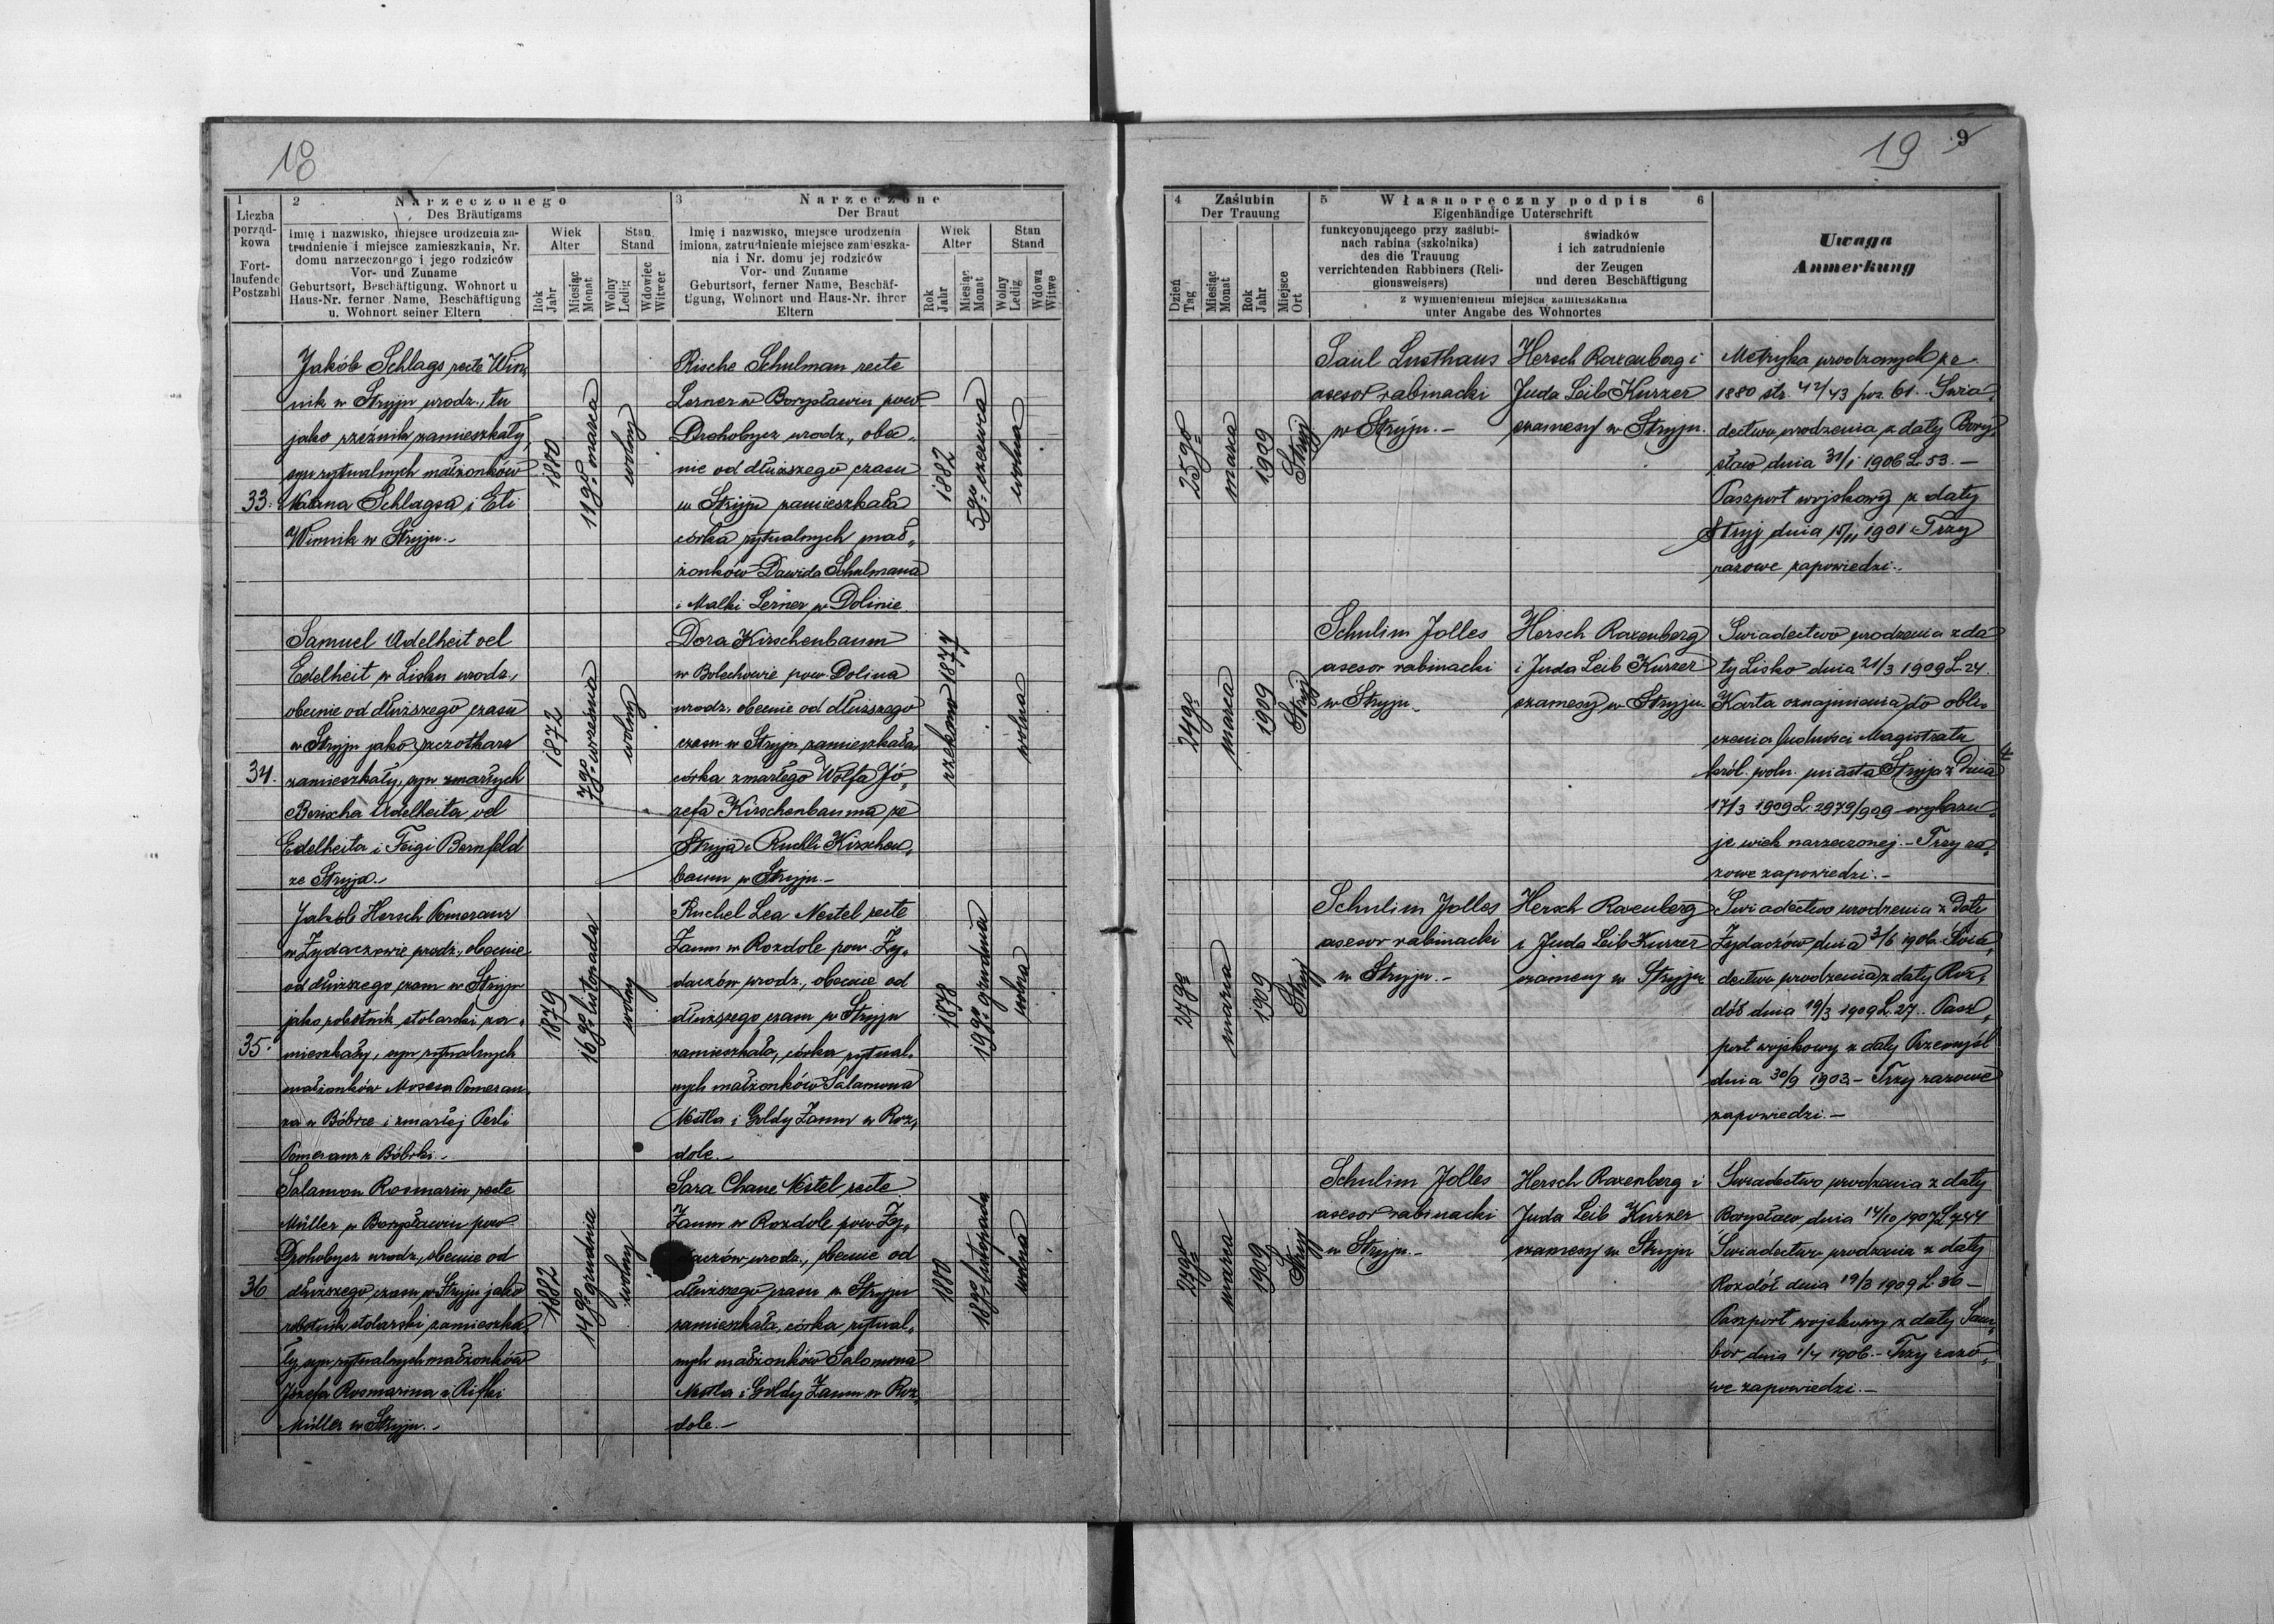 18
1
Liczba
porząd-
kowa
Fort-
laufende
Postzahl
2 Narzeczonego
Des Bräutigams
Imię i nazwisko, miejsce urodzenia za-
trudnienie i miejsce zamieszkania, Nr.
domu narzeczonego i jego rodziców
Vor- und Zuname
Geburtsort, Beschäftigung, Wohnort u
Haus-Nr. ferner Name, Beschäftigung
u. Wohnort seiner Eltern
Wiek
Alter
Rok
Jahr
Miesiąc
Monat
Stan
Stand
Wolny
Ledig
Wdowiec
Witwer
3 Narzeczone
Der Braut
Imię i nazwisko, miejsce urodzenia
imiona, zatrudnienie miejsce zamieszka-
nia i Nr. domu jej rodziców
Vor- und Zuname
Geburtsort, ferner Name, Beschäf-
tigung, Wohnort und Haus-Nr. ihrer
Eltern
Wiek
Alter
Rok
Jahr
Miesiąc
Monat
Stan
Stand
Wolny
Ledig
Wdowa
Witwe
33.
Jakób Schlags recte Win„
nik w Stryju urodz., tu
jako rzeźnik zamieszkały,
syn rytualnych małżonków
Natana Schlagsa i Eti
Winnik w Stryju.-
1880
11go marca
wolny
Rische Schulman recte
Lerner w Borysławiu pow.
Drohobycz urodz., obe„
nie od dłuższego czasu
w Stryju zamieszkała
córka rytualnych mał„
żonków Dawida Schulmana
i Malki Lerner w Dolinie
1882
5go czerwca
wolna
34.
Samuel Adelheit vel
Edelheit w Lisku urodz.,
obecnie od dłuższego czasu
w Stryju jako szczotkarz
zamieszkały, syn zmarłych
Berischa Adelheita vel
Edelheita i Feigi Bernfeld
ze Stryja.-
1872
7go września
wolny
Dora Kirschenbaum
w Bolechowie pow. Dolina
urodz., obecnie od dłuższego
czasu w Stryju zamieszkała,
córka zmarłego Wolfa Jó„
zefa Kirschenbauma ze
Stryja i Ruchli Kirschen„
baum w Stryju.-
rzekomo 1877
wolna
35.
Jakób Hersch Pomeranz
w Żydaczowie urodz., obecnie
od dłuższego czasu w Stryju
jako robotnik stolarski za„
mieszkały, syn rytualnych
małżonków Mosesa Pomeran„
za w Bóbrce i zmarłej Perli
Pomeranz z Bóbrki.-
1879
16go listopada
wolny
Ruchel Lea Nestel recte
Zaum w Rozdole pow. Ży„
daczów urodz., obecnie od
dłuższego czasu w Stryju
zamieszkała, córka rytual„
nych małżonków Salamona
Nestla i Goldy Zaum w Roz„
dole.-
1878
19go grudnia
wolna
36
Salamon Rosmarin recte
Müller w Borysławiu pow.
Drohobycz urodz., obecnie od
dłuższego czasu w Stryju jako
robotnik stolarski zamieszka„
ły, syn rytualnych małżonków
Józefa Rosmarina i Rifki
Müller w Stryju.-
1882
14go grudnia
wolny
Sara Chane Nestel recte
Zaum w Rozdole pow. Ży„
daczów urodz., obecnie od
dłuższego czasu w Stryju
zamieszkała, córka rytual„
nych małżonków Salomona
Nestla i Goldy Zaum w Roz„
dole.-
1880
18go listopada
wolna
19 9
4 Zaślubin
Der Trauung
Dzień
Tag
Miesiąc
Monat
Rok
Jahr
Miejsce
Ort
5 Własnoręczny podpis 6
Eigenhändige Unterschrift
funkcyonującego przy zaślubi-
nach rabina (szkolnika)
des die Trauung
verrichtenden Rabbiners (Reli-
gionsweisers)
świadków
i ich zatrudnienie
der Zeugen
und deren Beschäftigung
z wymienieniem miejsca zamieszkania
unter Angabe des Wohnortes
Uwaga
Anmerkung
25go
marca
1909
Stryj
Saul Lusthaus
asesor rabinacki
w Stryju.-
Hersch Raxenberg i
Juda Leib Kurzer
szamesy w Stryju.
Metryka urodzonych ze
1880 str. 42/43 poz. 61. Świa„
dectwo urodzenia z daty Bory„
sław dnia 31/1 1906 L. 53.-
Paszport wojskowy z daty
Stryj dnia 15/11 1901 Trzy
razowe zapowiedzi.-
24go
marca
1909
Stryj
Schulim Jolles
asesor rabinacki
w Stryju.-
Hersch Raxenberg
i Juda Leib Kurzer
szamesy w Stryju.
Świadectwo urodzenia z da
ty Lisko dnia 21/3 1909 L. 24.
Karta oznajmienia do obli„
czenia ludności Magistratu
król. woln. miasta Stryja z dnia
17/3 1909 L. 2979/909 wykazu„
je wiek narzeczonej.- Trzy ra„
zowe zapowiedzi.-
24go
marca
1909
Stryj
Schulim Jolles
asesor rabinacki
w Stryju.-
Hersch Raxenberg
i Juda Leib Kurzer
szamesy w Stryju
Świadectwo urodzenia z daty
Żydaczów dnia 3/6 1906. Świa„
dectwo urodzenia z daty Roz„
dół dnia 19/3 1909 L. 27. Pasz„
port wojskowy z daty Przemyśl
dnia 30/9 1903.- Trzy razowe
zapowiedzi.-
marca
1909
Stryj
Schulim Jolles
asesor rabinacki
w Stryju.-
Hersch Raxenberg i
Juda Leib Kurzer
szamesy w Stryju
Świadectwo urodzenia z daty
Borysław dnia 14/10 1907 L. 744
Świadectwo urodzenia z daty
Rozdół dnia 19/3 1909 L. 36-
Paszport wojskowy z daty Sam„
bor dnia 1/4 1906.- Trzy razo„
we zapowiedzi.-